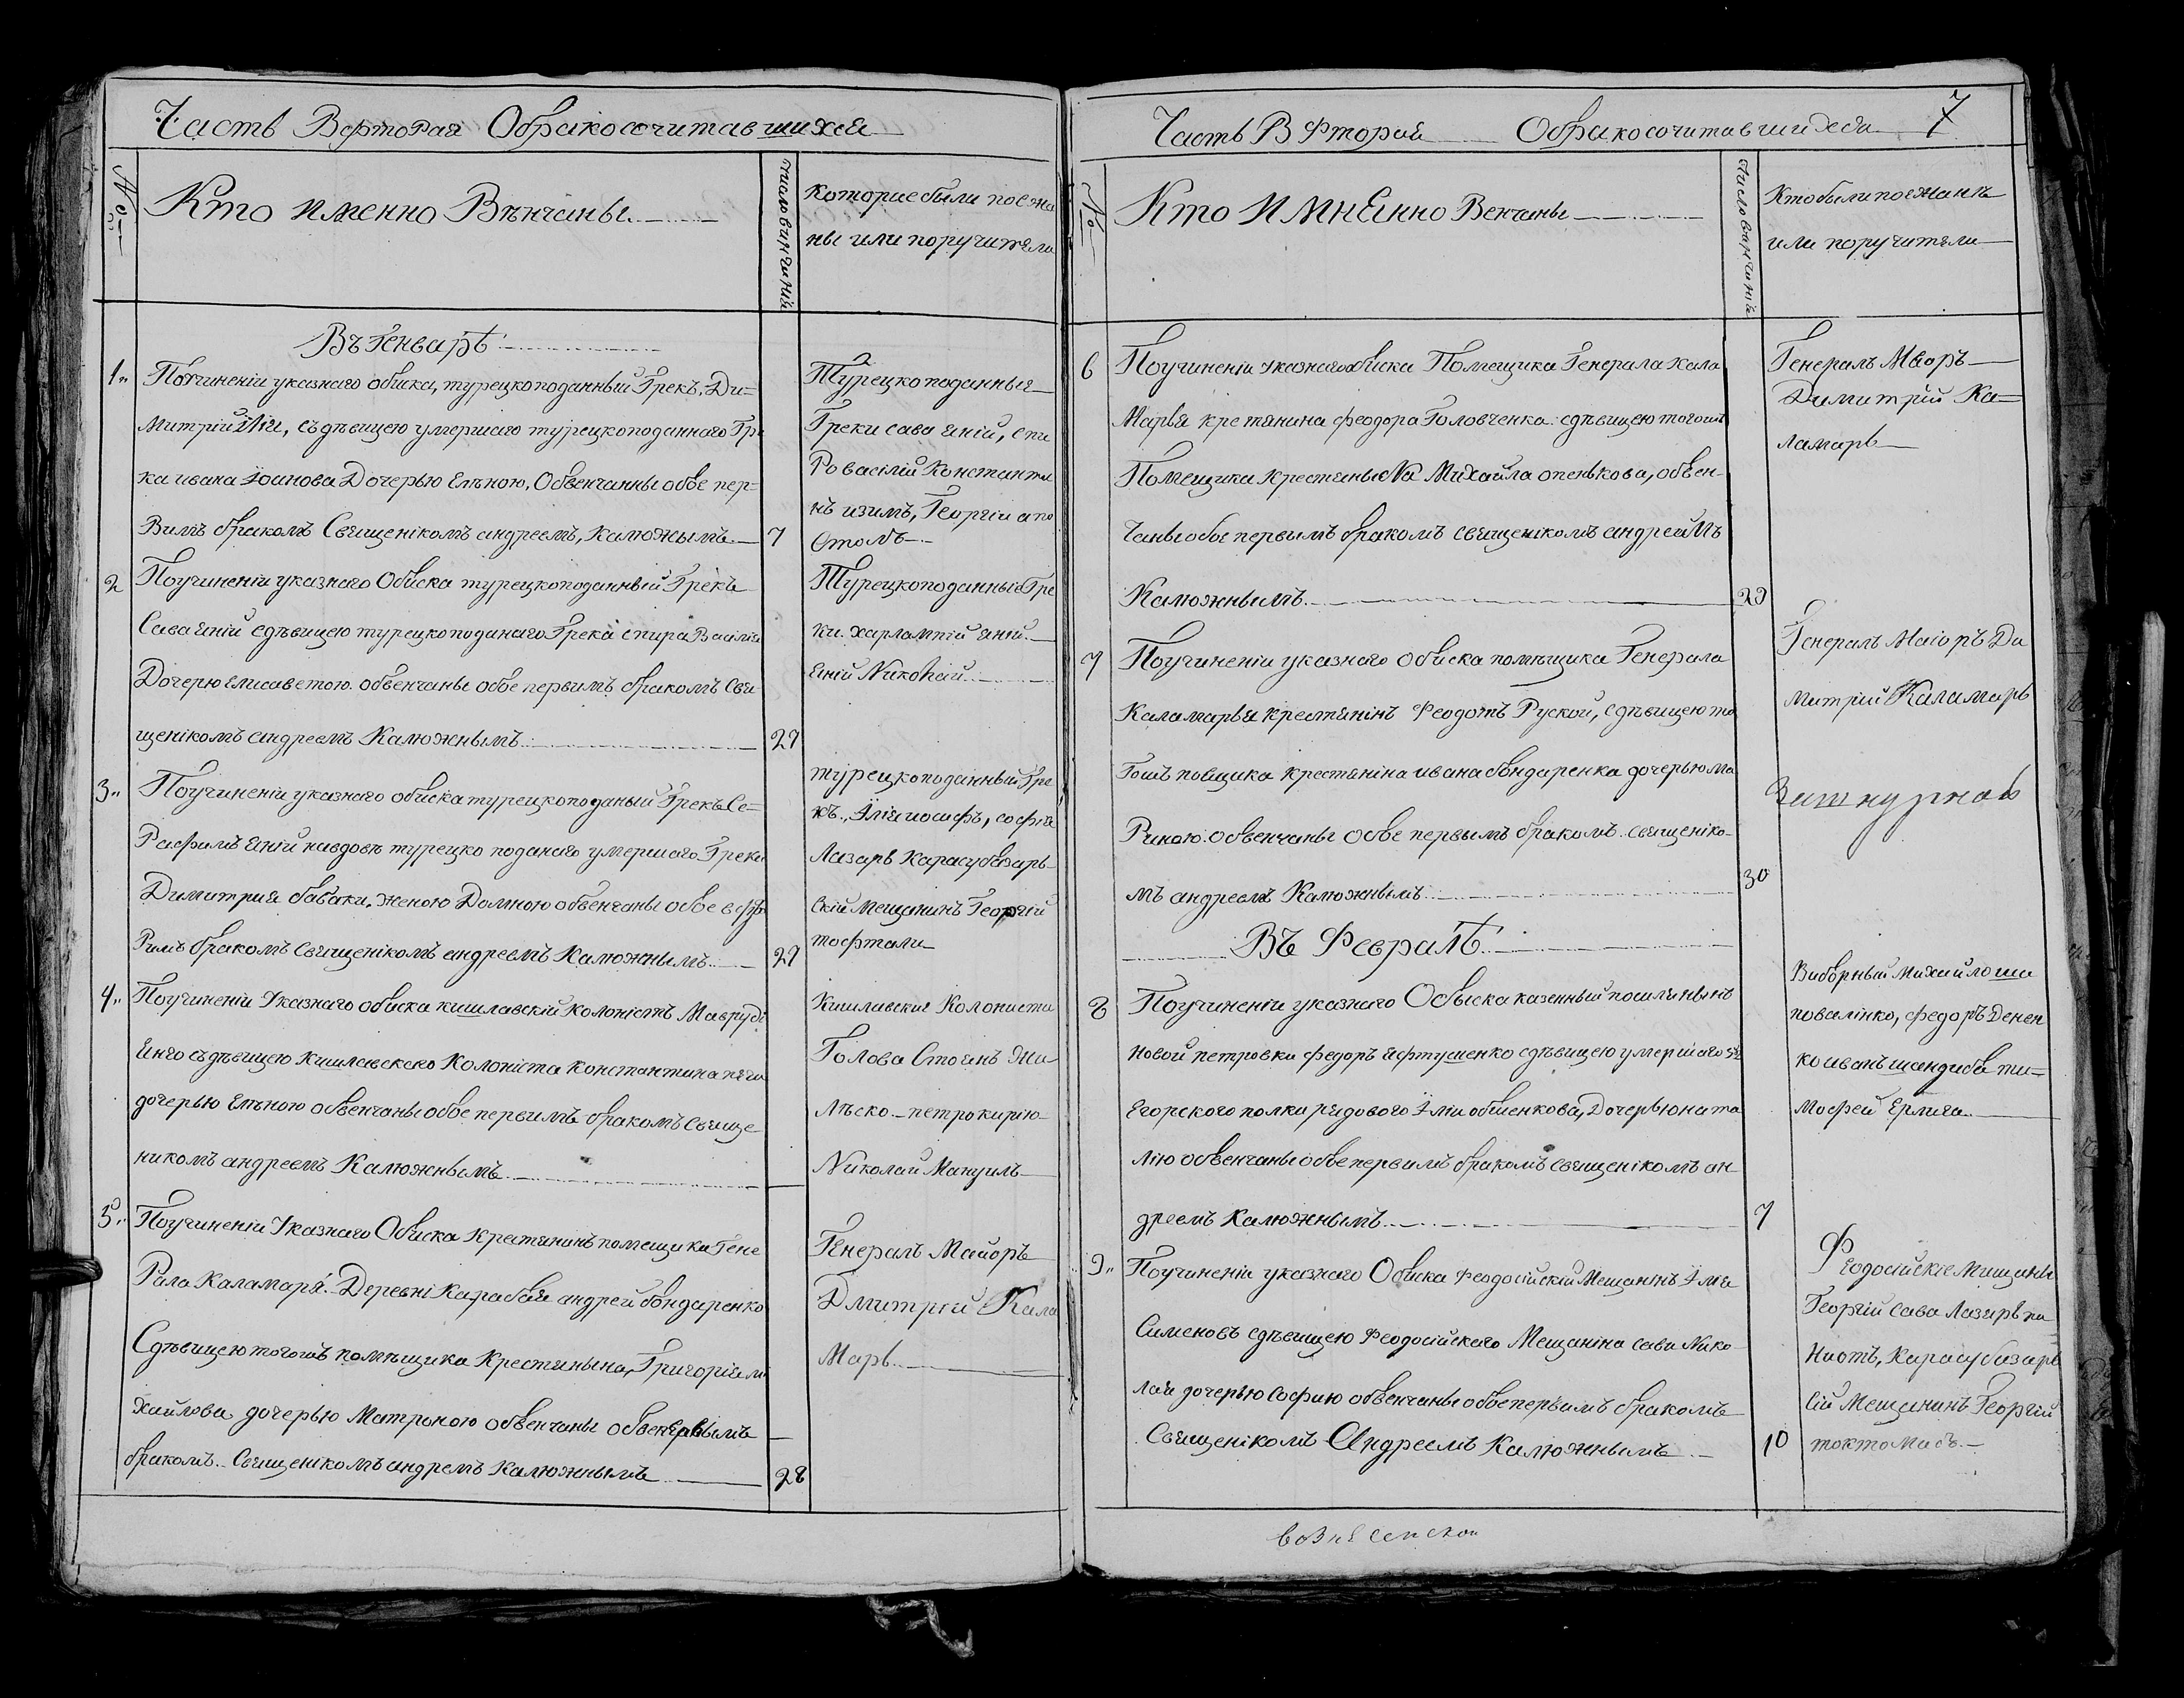 Часть Вфторая Обракосочитавшихся
№
Кто именно Вѣнчаны
число винчиний
которие были поежа
ны или поручители
Въ Генварѣ
1 Поучинении указнаго обиска, турецкоподанный Грекъ, Ди=
митрий Илія, съдѣвицею умершаго турецкоподаннаго Гре
ка ивана Іоанова Дочерью Еленою, Обвенчанны обое пер=
Вимъ бракомъ Священікомъ андреемъ, Калюжнымъ 7
Турецкоподанныя
Греки сава яній, спи
Ро василій Константи
нъ изимъ, Георгіи апо
столъ
2 Поучинении указнаго Обиска турецкоподанный Грекъ
Сава яній сдѣвицею турецкоподанаго Грека спира Василія
Дочерю елисаветою обвенчаны обое первимъ бракомъ Свя
щенікомъ андреемъ Калюжнымъ 29
Турецкоподанные Гре
ки харлампій яній
яній Николай
3 Поучинении указнаго обиска турецкоподаный Грекъ Се=
Рафимъ яній навдовѣ турецко поданаго умершаго Грека
Димитрия бабаки женою Домною обвенчаны обое вфто
Римъ бракомъ священікомъ андреемъ Калюжнымъ 29
турецкоподанный Гре
къ, Ілія иосифъ, софія
Лазарь Карасубазарь
скій Мещанинъ Георгій
тофтали
4 Поучинении Указнаго обиска кишлавскій Колоністъ Мавруді
Янго съдѣвицею Кишлавскаго Колоніста Константина
дочерью Еленою обвенчаны обое первимъ бракомъ Свяще
никомъ андреемъ Калюжнымъ
Кишлавские Колонисти
Голова Стоянъ Жи
лѣско петрокирію
Николай Мануилъ
5 Поучинении Указнаго Обиска Крестянинъ помещика Гене
Рала Каламаря Деревні Карабая андрей бондаренко
Сдѣвицею тогошъ помѣщика Крестянына, Григорія ми
хайлова дочерью Матроною обвенчаны обое первымъ
бракомъ Священікомъ андремъ Калюжнымъ 28
Генералъ Майоръ
Дмитрій Кала
Марь
Часть Вфторая Обракосочитавшихся 7
№
Кто Имнянно Венчаны
число варчиній
Кто были поежани
или поручители
6 Поучинении указнаго обиска Помещика Генерала Кала
Марья крестянина феодора Головченка сдѣвицею тогошъ
Помещика крестяныNа Михайла опенькова, обвен-
Чаны обое первымъ бракомъ священікомъ андреймъ
Калюжнымъ 29
Генералъ Маоръ
Димитрий Ка=
ламарь
7 Поучинении указнаго обиска помѣщика Генерала
Каламарья крестянінъ Феодотъ Руской, сдѣвицею то
Гошъ повщика крестяніна ивана бондаренка дочерью Ма
Риною обвенчаны обое первымъ бракомъ священіко-
мъ андреемъ Калюжнымъ 30
Генералъ Маіоръ Ди
митрий Каламарь
Въ Февралѣ
8 Поучинении указнаго Обыска казенный поселянынъ
новой петровки федоръ яфтушенко сдѣвицею умершаго
Егорского полки рядового Іліи обшенкова, Дочерью ната
лію обвенчаны обое первимъ бракомъ священікомъ ан
дреемъ Калюжнымъ 7
Виборный Михайло ша
повалінко, федоръ Денен
ко иванъ шандиба ти=
мофей Ермига
9 Поучинении указнаго Обиска Феодосійскій Мещанінъ Ілія
Сименовъ сдѣвицею Феодосійскаго Мещаніна сави Нико
лая дочерью Софию обвенчаны обое первимъ бракомъ
Священікомъ Андреемъ Калюжнымъ 10
Феодосійские Мищаны
Георгій сава Лазарь па
Наіотъ, Карасубазарь
сій Мещанинъ Георгій
токтомасъ
вознесенской